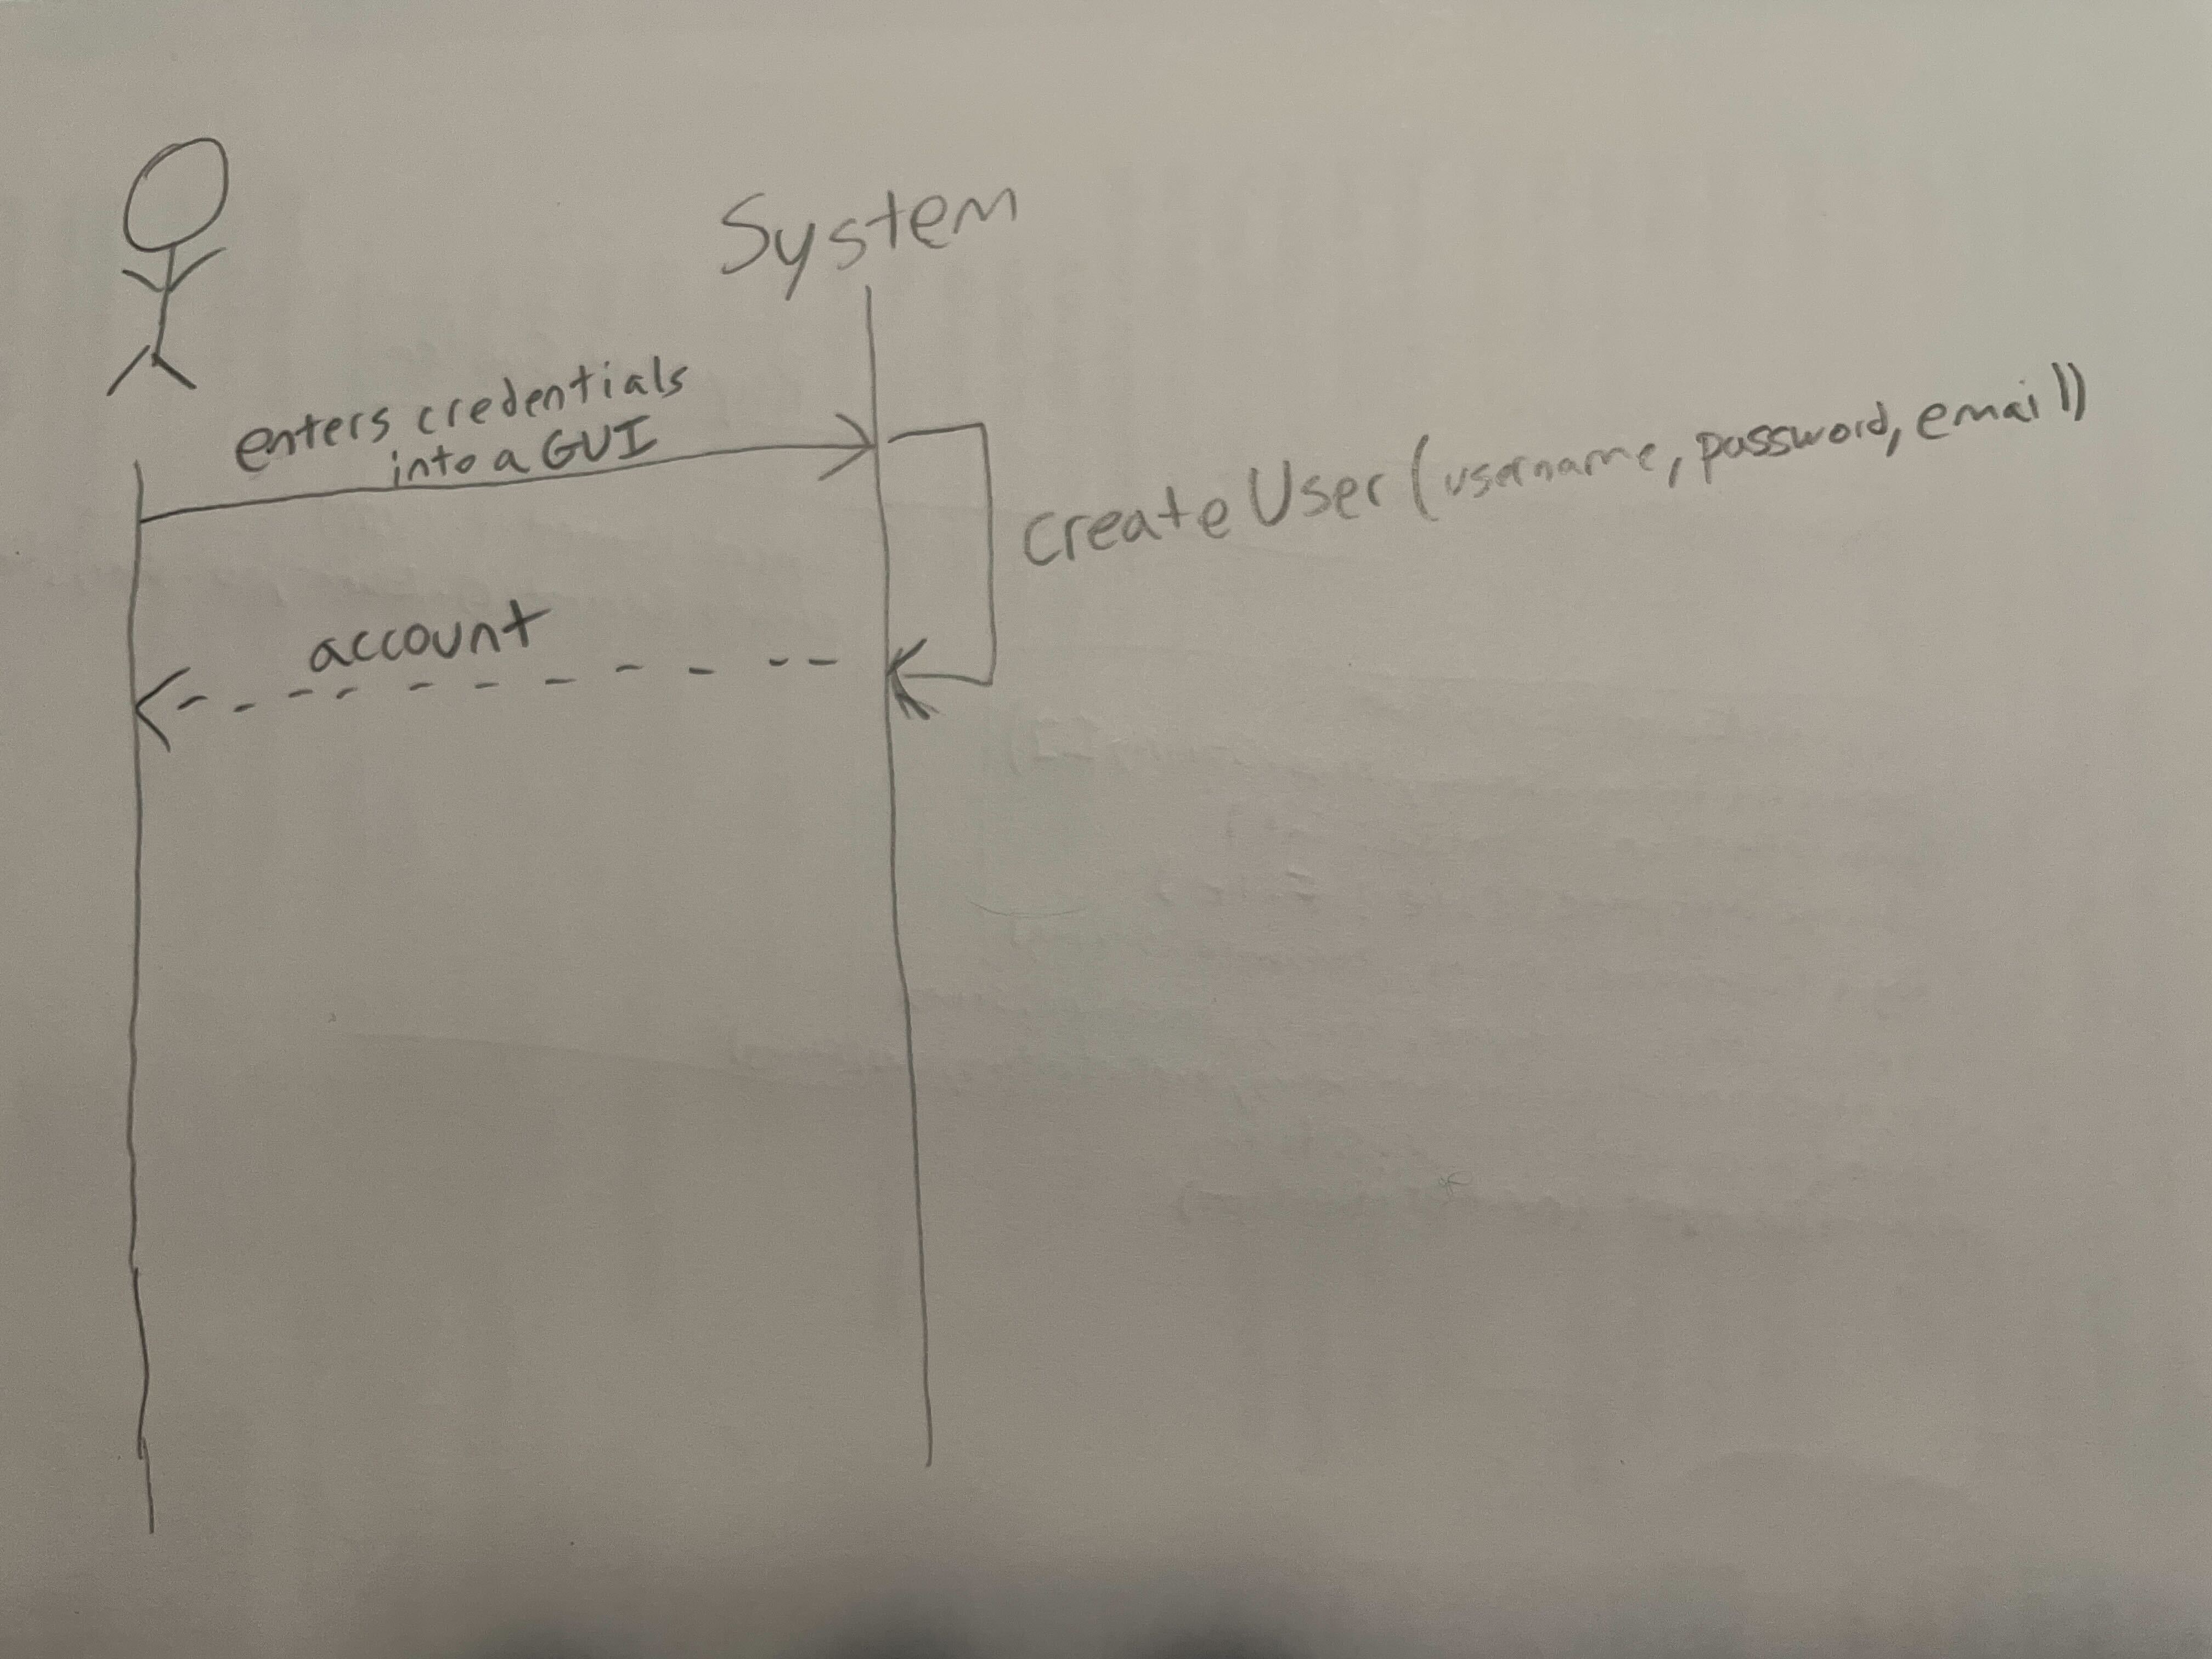 System
enters credentials
into a GUI
createUser(username, password, email)
account